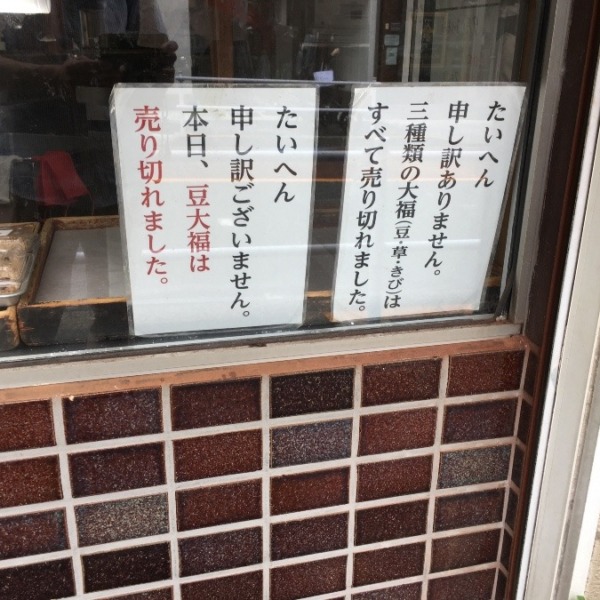 たいへん
申し訳ありません。
三種類の大福(豆・草・きび)は
すべて売り切れました。
たいへん
申し訳ございません。
本日、豆大福は
売り切れました。